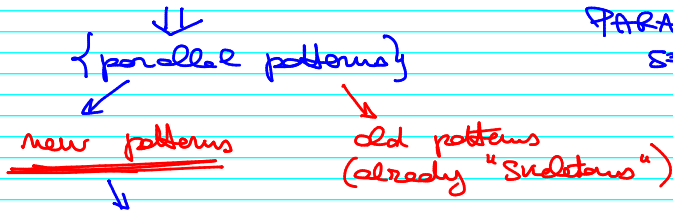 PARA
{parallel patterns}
new patterns old patterns
(already "Skeletons")